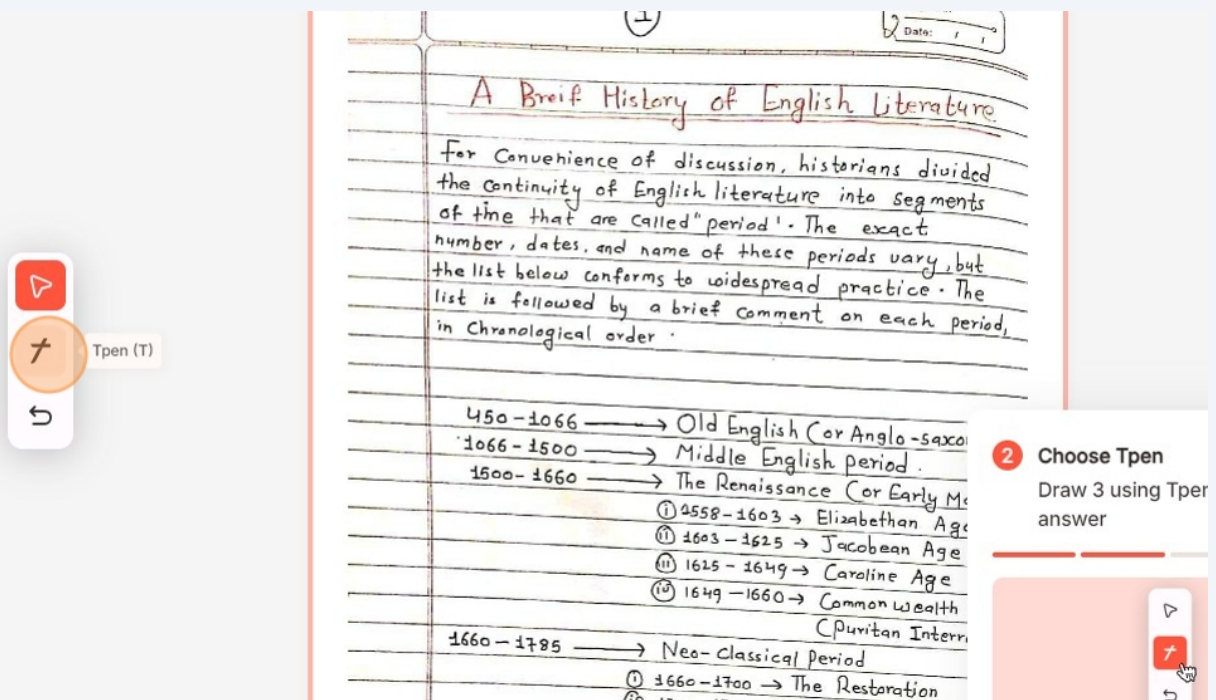 1
Date: / /
A Breif History of English Literature
For Convenience of discussion, historians divided
the continuity of English literature into segments
of time that are called "period'. The exact
number, dates, and name of these periods vary, but
the list below conforms to widespread practice. The
list is followed by a brief comment on each period,
in Chronological order.
Tpen (T)
450-1066 → Old English (or Anglo-saxo
1066-1500 → Middle English period.
1500-1660 → The Renaissance (or Early Mo
(i) 1558-1603 → Elizabethan Age
(ii) 1603-1625 → Jacobean Age
(iii) 1625-1649 → Caroline Age
(iv) 1649-1660 → Common wealth
(Puritan Interr
1660-1785 → Neo-Classical Period
(i) 1660-1700 → The Restoration
2 Choose Tpen
Draw 3 using Tpen
answer